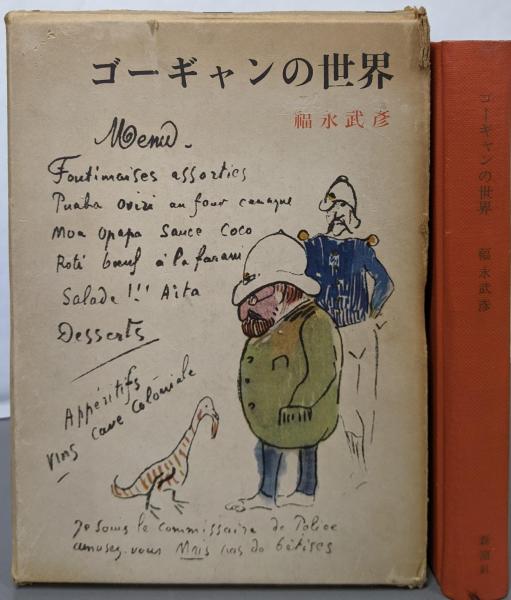 ゴーギャンの世界
福永武彦
Menu.
Foutimaises assorties
Puaba Oviri au four canaque
Moa Opapa Sauce Coco
Roti bœuf à la farani
Salade !!! Aita
Desserts
Appéritifs
vins cave Coloniale
Je sous le Commissaire de Police
amusez-vous Mais pas de bêtises
ゴーギャンの世界 福永武彦
新潮社